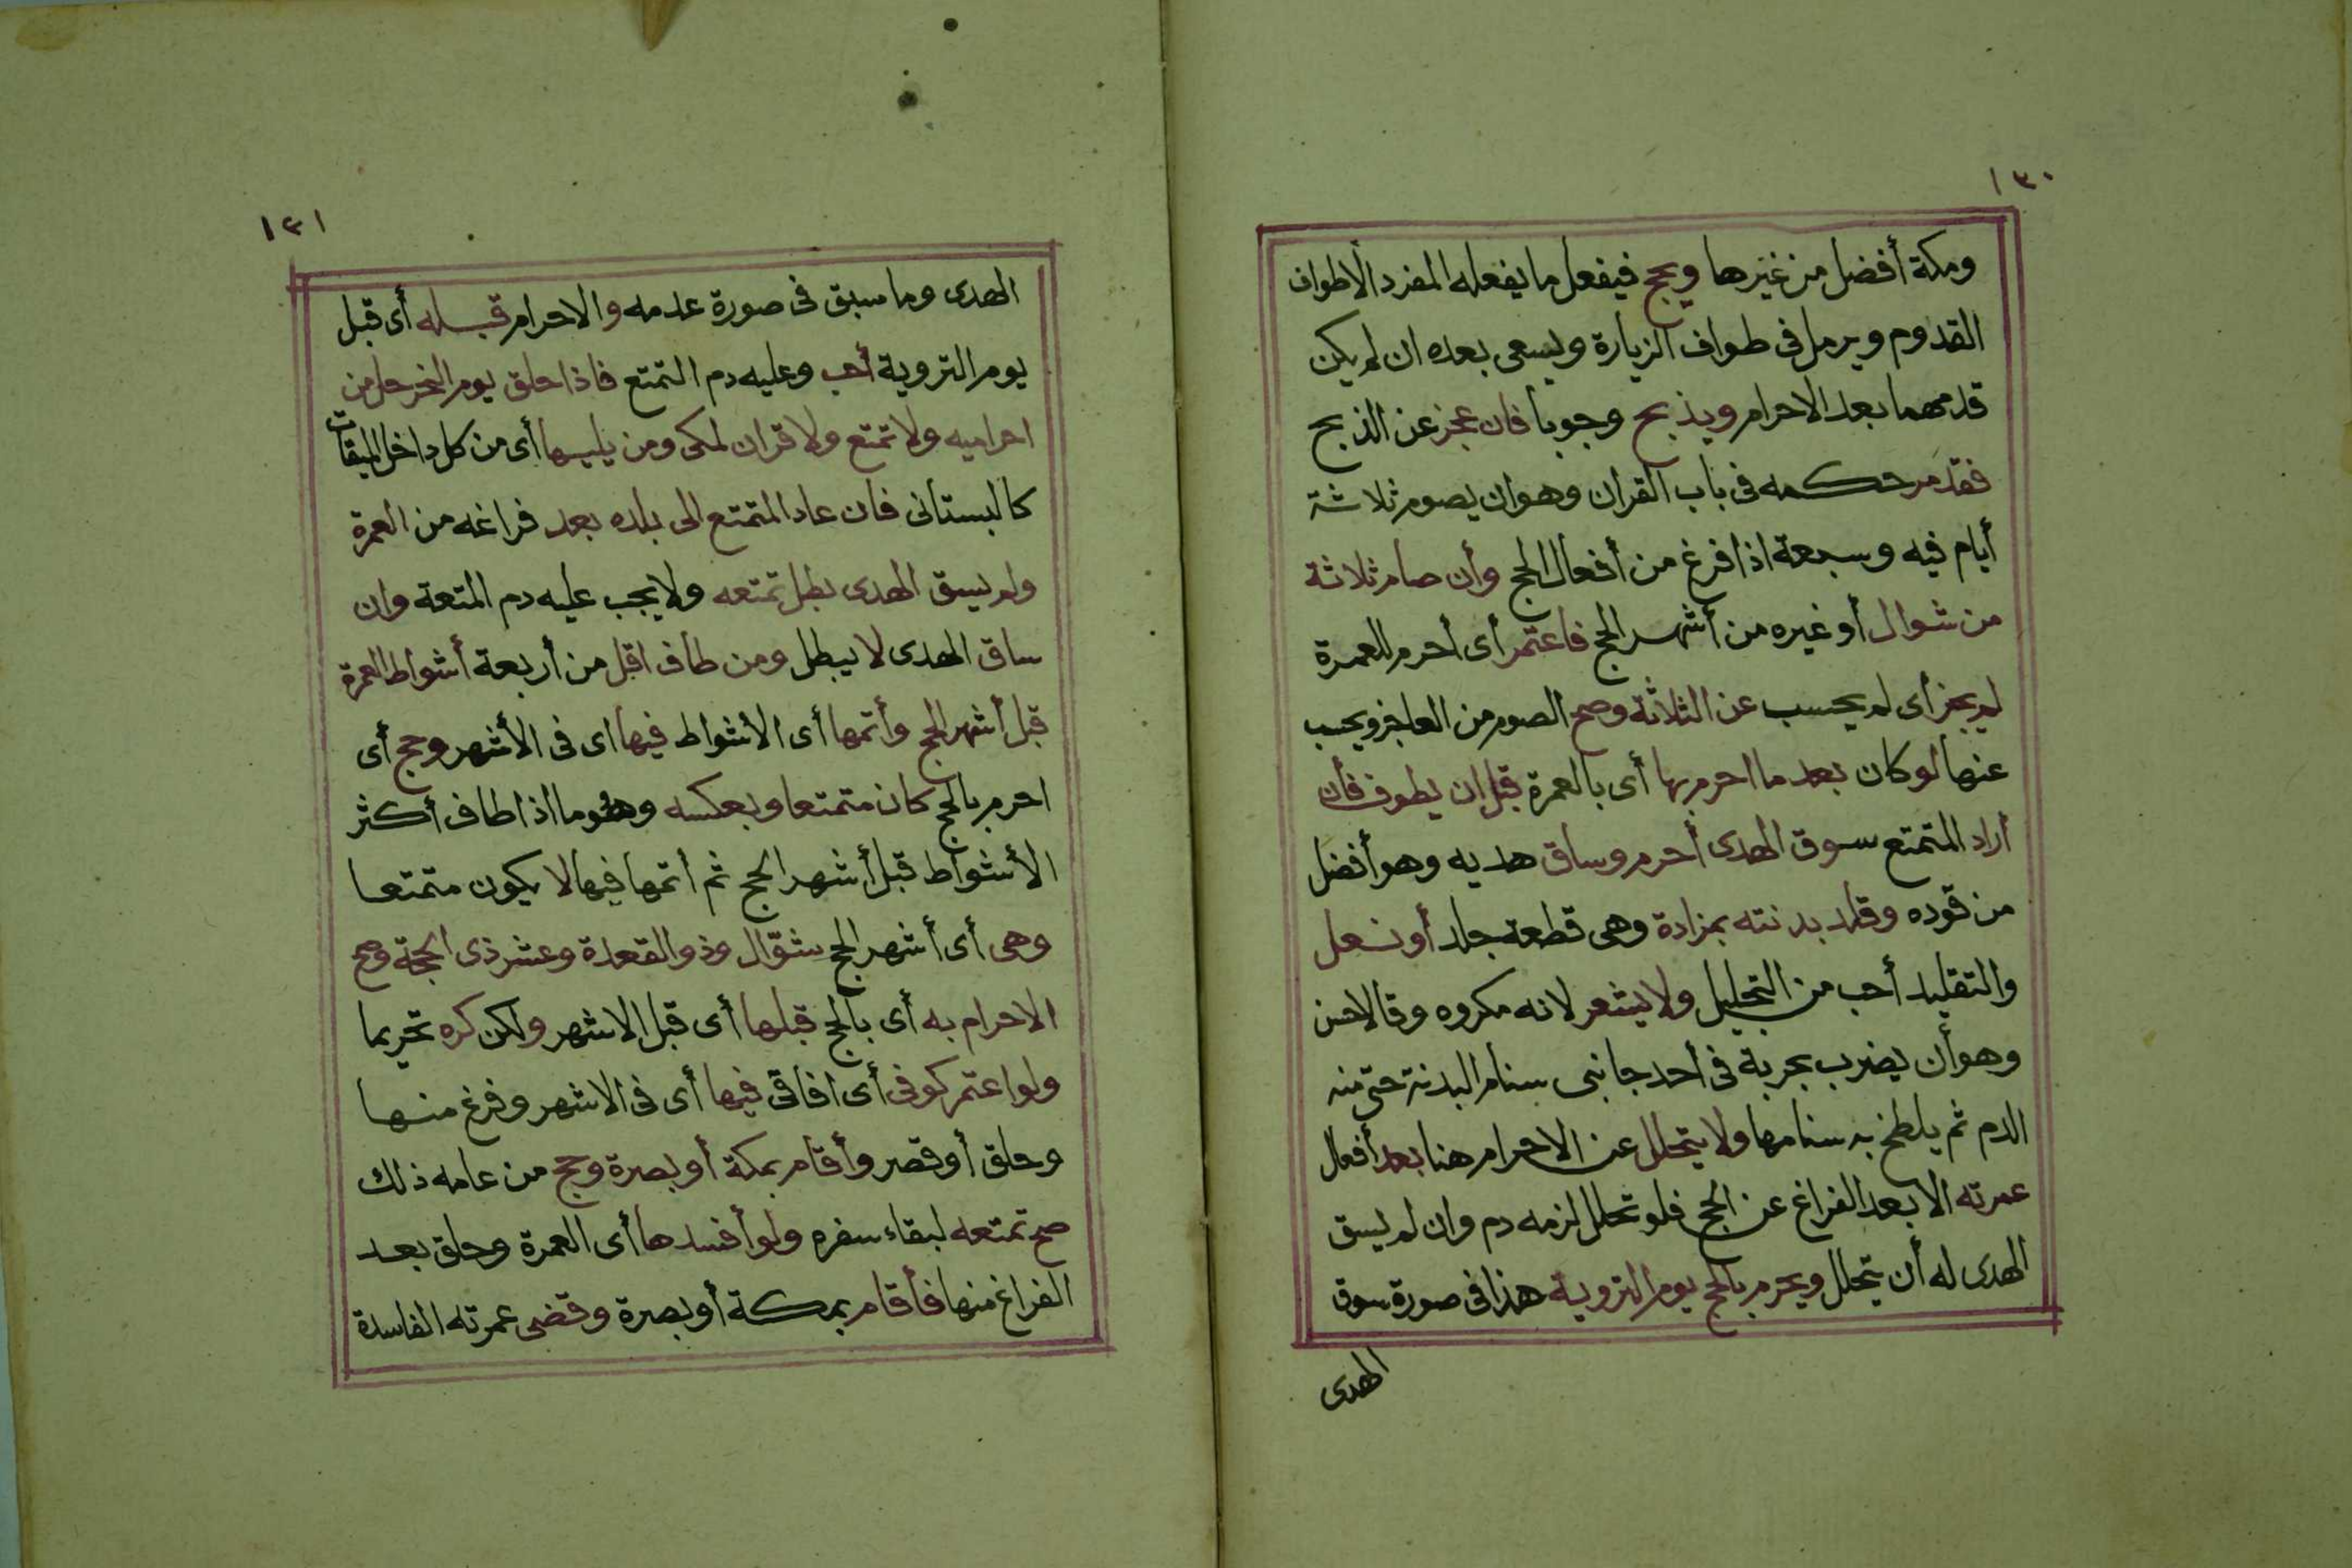 ١٣٠
ومكة أفضل من غيرها ويحج فيفعل ما يفعله المفرد الاطواف
القدوم ويرمل فى طواف الزيارة ويسعى بعده ان لم يكن
قدمهما بعد الاحرام ويذبح وجوبا فان عجز عن الذبح
فقد مر حكمه فى باب القران وهو ان يصوم ثلاثة
أيام فيه وسبعة اذا فرغ من أفعال الحج وأن صام ثلاثة
من شوال أو غيره من أشهر الحج فاعتمر أى أحرم للعمرة
لم يجز أى لم يحسب عن الثلاثة وصح الصوم من العاجز ويحسب
عنها لو كان بعد ما احرم بها أى بالعمرة قبل ان يطوف فأن
أراد المتمتع سوق الهدى أحرم وساق هديه وهو أفضل
من قوده وقلد بدنته بمزادة وهى قطعة جلد أو نعل
والتقليد أحب من التجليل ولا يشعر لانه مكروه وقالا حسن
وهو أن يضرب بحربة فى أحد جانبى سنام البدنة حتى منه
الدم ثم يلطخ به سنامها ولا يتحلل عن الاحرام هنا بعد أفعال
عمرته الا بعد الفراغ عن الحج فلو تحلل لزمه دم وان لم يسق
الهدى له أن يتحلل ويحرم بالحج يوم التروية هذا فى صورة سوق
الهدى
١٣١
الهدى وما سبق فى صورة عدمه والاحرام قبله أى قبل
يوم التروية أحب وعليه دم التمتع فاذا حلق يوم النحر حل من
احراميه ولا تمتع ولا قران لمكى ومن يليها أى من كل داخل الميقات
كالبستانى فان عاد المتمتع الى بلده بعد فراغه من العمرة
ولم يسق الهدى بطل تمتعه ولا يجب عليه دم المتعة وان
ساق الهدى لا يبطل ومن طاف اقل من أربعة أشواط العمرة
قبل أشهر الحج وأتمها أى الأشواط فيها اى فى الأشهر وحج أى
احرم بالحج كان متمتعا وبعكسه وهو ما اذا طاف أكثر
الأشواط قبل أشهر الحج ثم أتمها فيها لا يكون متمتعا
وهى أى أشهر الحج شوّال وذو القعدة وعشر ذى الحجة وصح
الاحرام به أى بالحج قبلها أى قبل الاشهر ولكن كره تحريما
ولو اعتمر كوفى أى افاقى فيها أى فى الاشهر وفرغ منها
وحلق أو قصر وأقام بمكة أو بصرة وحج من عامه ذلك
صح تمتعه لبقاء سفره ولو أفسدها أى العمرة وحلق بعد
الفراغ منها فأقام بمكة أو بصرة وقضى عمرته الفاسدة